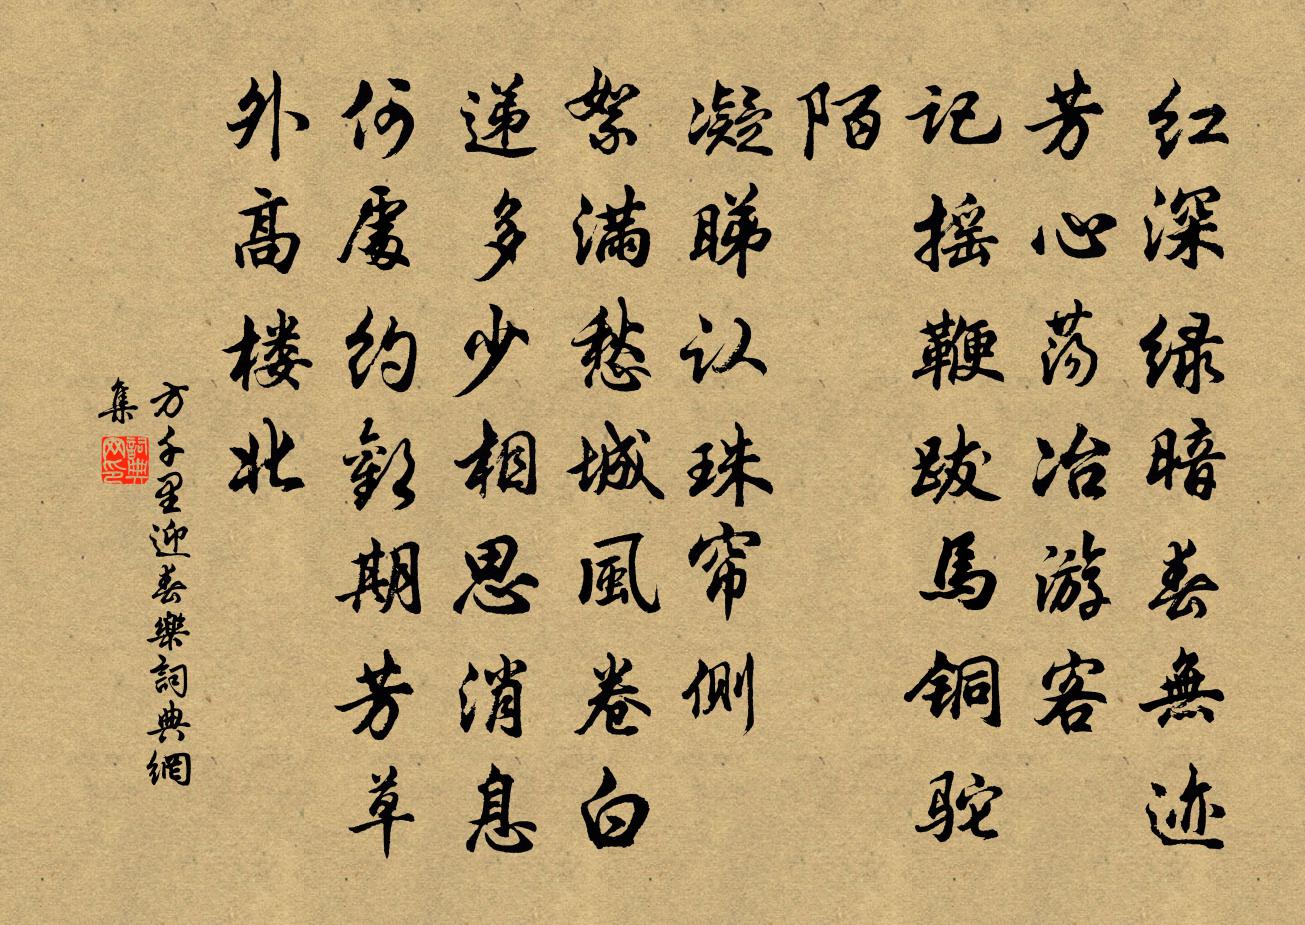 红深绿暗春無迹
芳心荡冶游客
记摇鞭跋馬铜驼
陌
凝睇认珠帘侧
絮满愁城風卷白
递多少相思消息
何處约歡期芳草
外高楼北
方千里迎春樂詞典網
集
詞典
网印